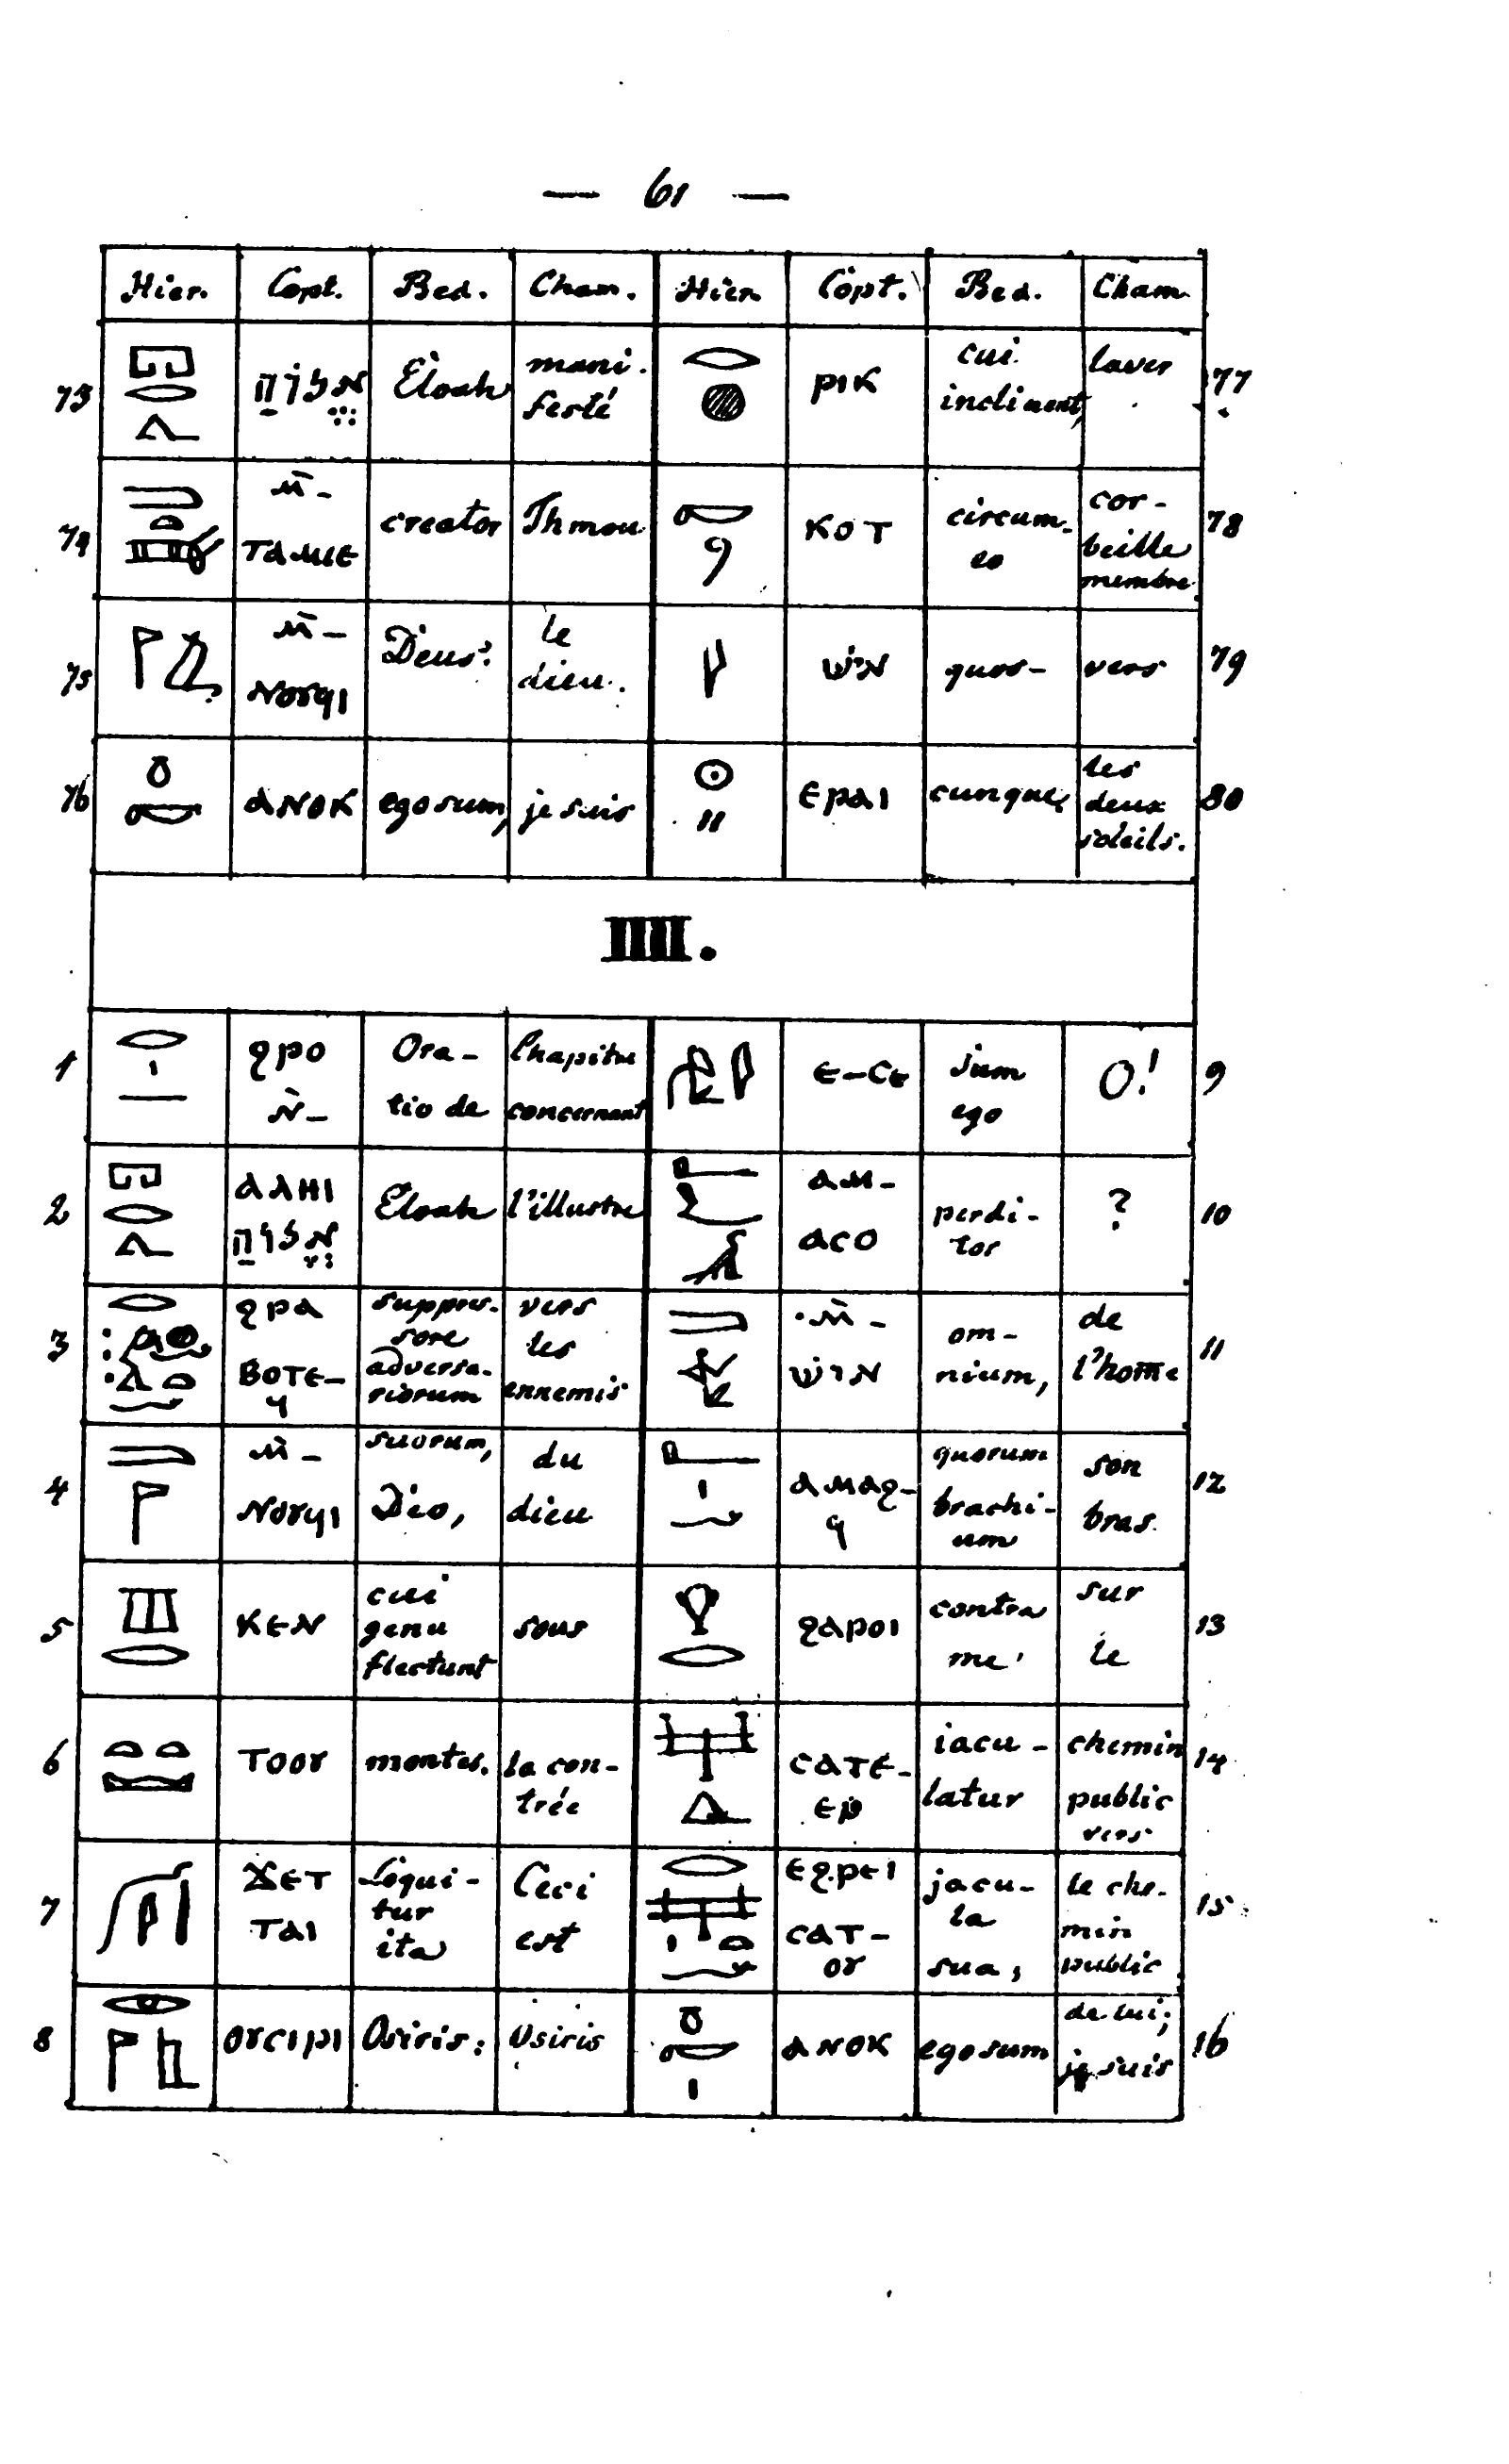 — 61 —
Hier. Copt. Bed. Cham. Hier. Copt. Bed. Cham.
73 אֱלוֹהַּ Eloah mani-
festé
ⲣⲓⲕ cui
inclinant, laver 77
74 ⲙ̄-
ⲧⲁⲙⲓⲉ creator Thmou
ⲕⲟⲧ circum-
eo cor-
beille
membre 78
75 ⲙ̄-
ⲛⲟⲩϥⲓ Deus: le
dieu.
אִישׁ quos- vers 79
76 ⲁⲛⲟⲕ ego sum, je suis
ⲉⲣⲁⲓ cunque; les
deux
soleils. 80
IIII.
1 ϩⲣⲟ
ⲛ̀- Ora-
tio de Chapitre
concernant
ⲉ-ⲥⲉ sum
ego O! 9
2 ⲁⲗⲏⲓ
אֱלוֹהַּ Eloah l'illustre
ⲁⲙ-
ⲁⲥⲟ perdi-
tor ? 10
3 ϩⲣⲁ
ⲃⲟⲧⲉ-
ϥ suppres-
sore
adversa-
riorum vers
les
ennemis
ⲙ̄-
אִישׁ om-
nium, de
l'home 11
4 ⲙ̄-
ⲛⲟⲩϥⲓ suorum,
Deo, du
dieu
ⲁⲙⲁϩ-
ϥ quorum
brachi-
um son
bras. 12
5 ⲕⲉⲛ cui
genu
flectunt sous
ϩⲁⲣⲟⲓ contra
me sur
le 13
6 ⲧⲟⲟⲩ montes. la con-
trée
ⲥⲁⲧⲉ-
ⲉⲣ iacu-
latur chemin
public
vers 14
7 ϫⲉⲧ
ⲧⲁⲓ Loqui-
tur
ita Ceci
est
ⲉϩⲣⲉⲓ
ⲥⲁⲧ-
ⲟⲩ jacu-
la
sua; le che-
min
public 15
8 ⲟⲩⲥⲓⲣⲓ Osiris: Osiris
ⲁⲛⲟⲕ ego sum de lui;
je suis 16